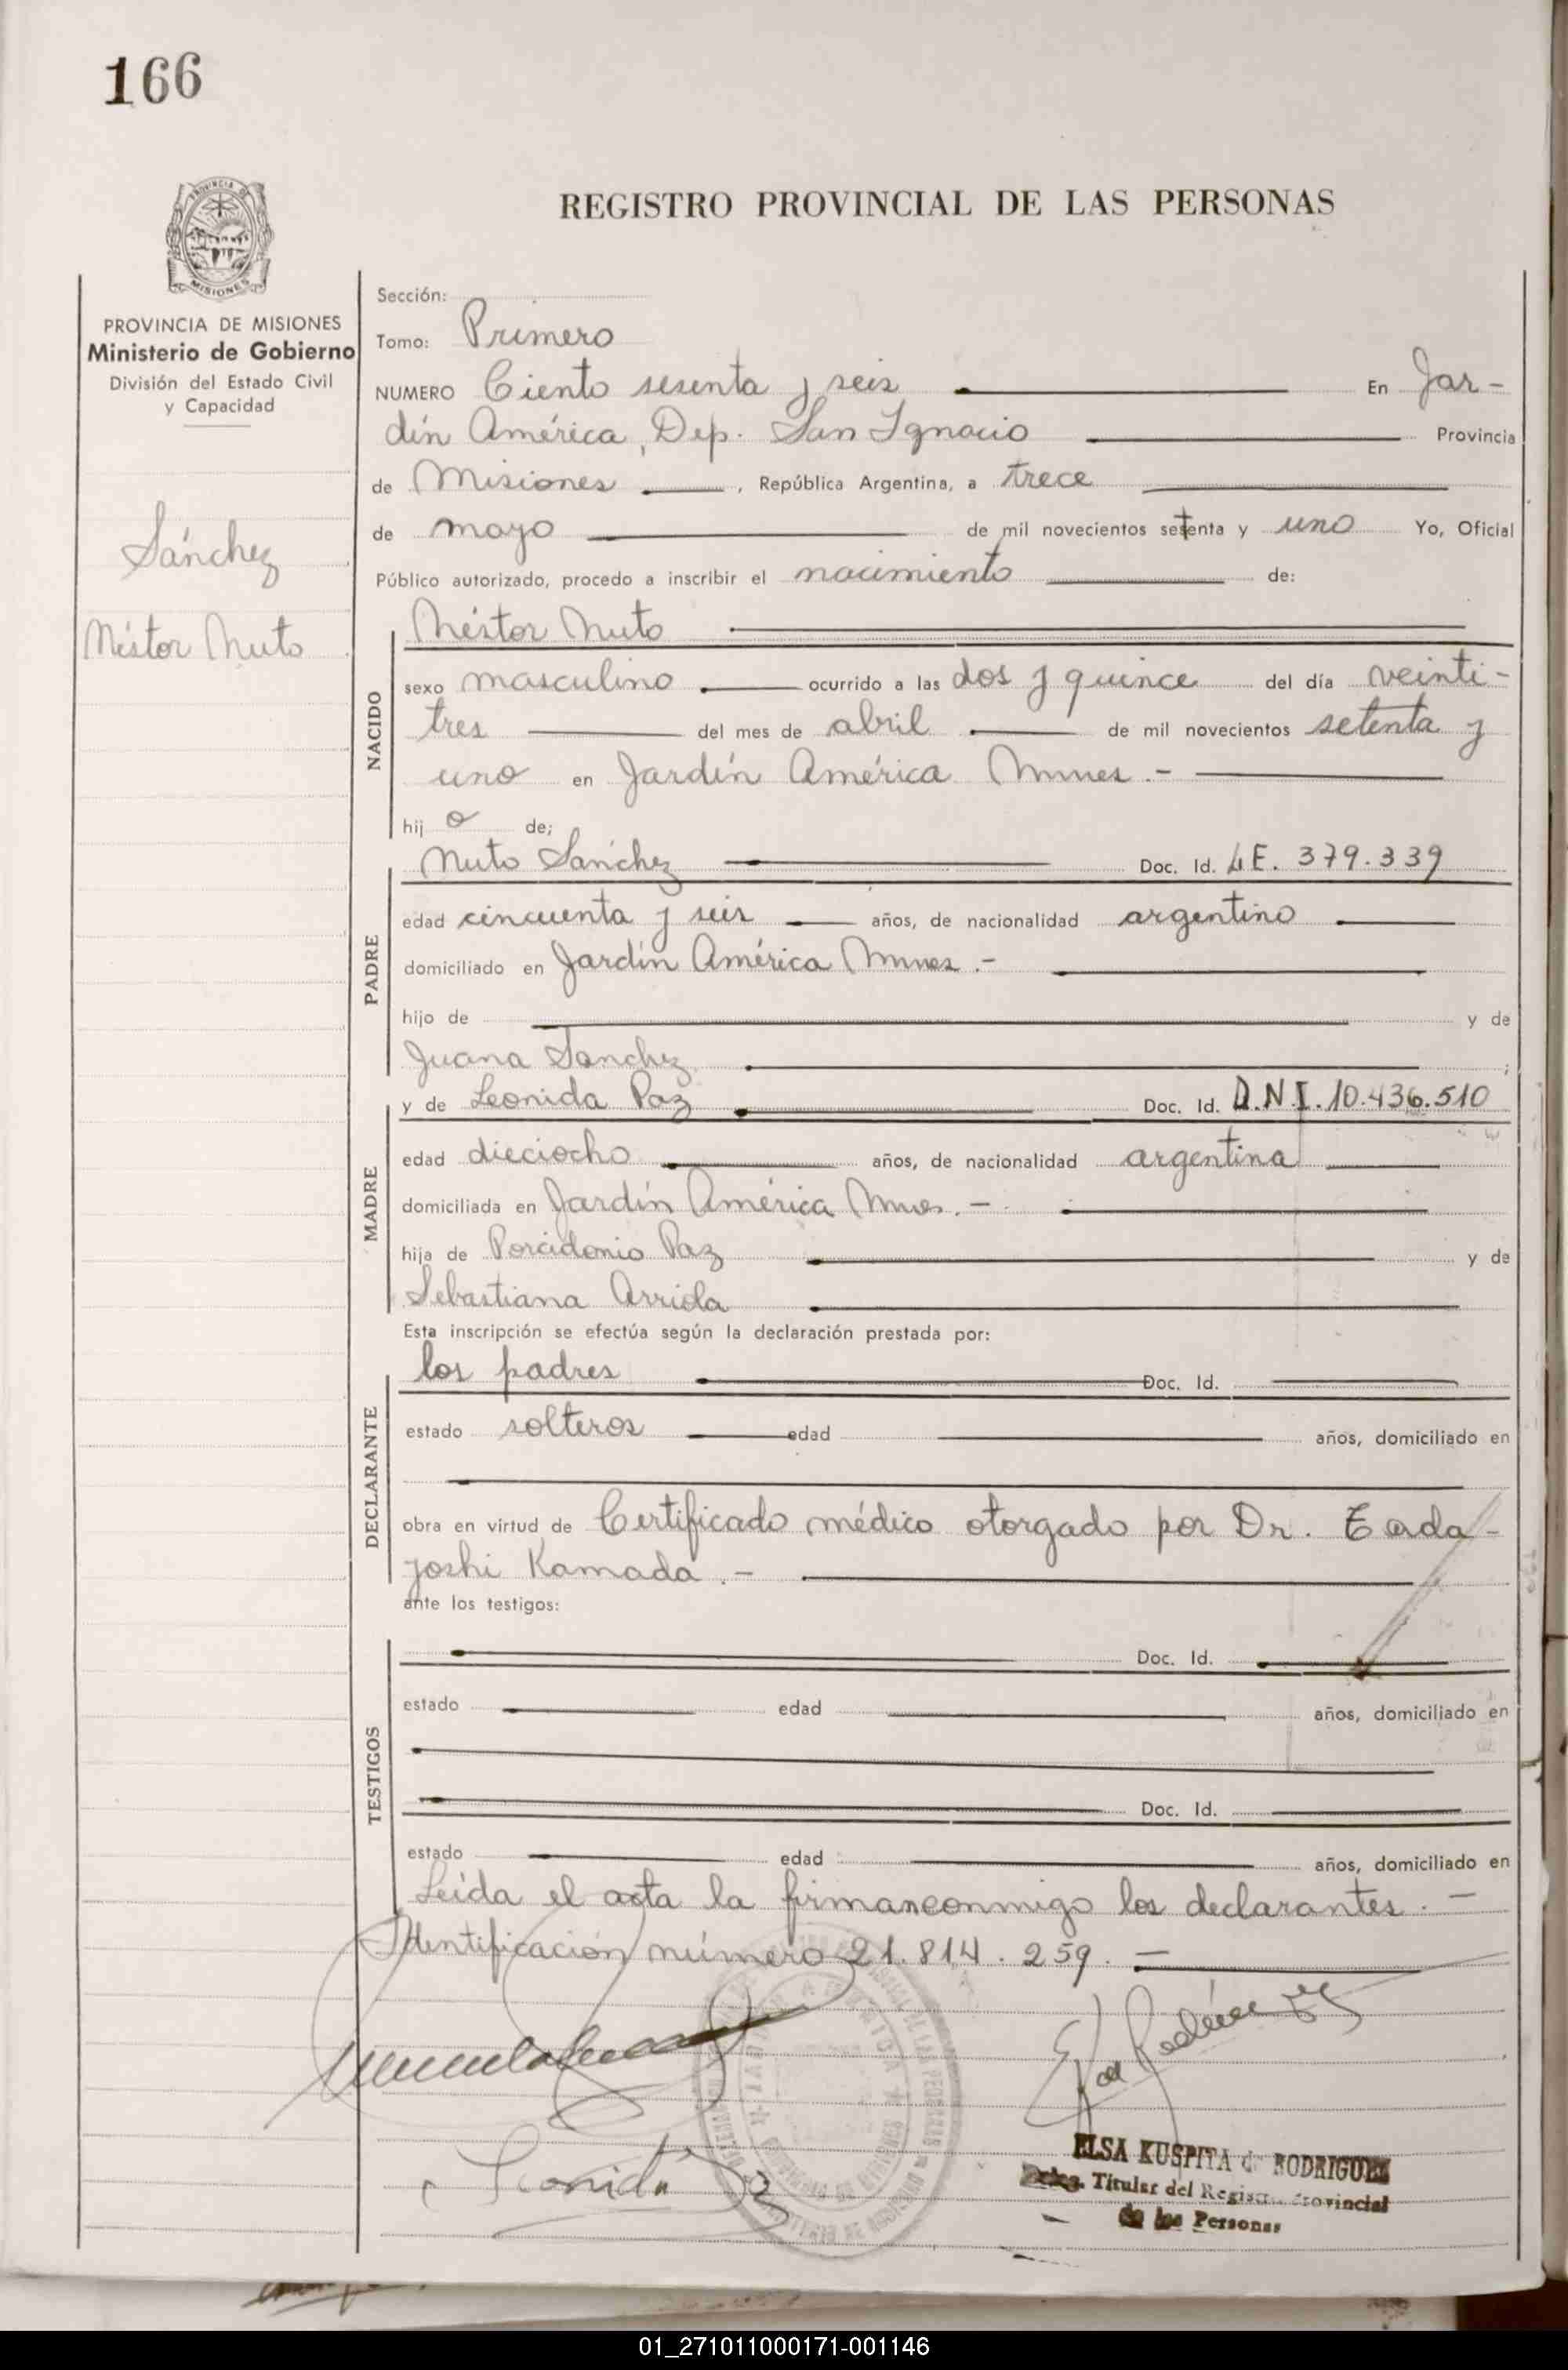 166
REGISTRO PROVINCIAL DE LAS PERSONAS
PROVINCIA DE
MISIONES
PROVINCIA DE MISIONES
Ministerio de Gobierno
División del Estado Civil
y Capacidad
Sánchez
Néstor Nuto
Sección:
Tomo: Primero
NUMERO Ciento sesenta y seis En Jar-
dín América, Dep. San Ignacio Provincia
de Misiones, República Argentina, a trece
de mayo de mil novecientos setenta y uno Yo, Oficial
Público autorizado, procedo a inscribir el nacimiento de:
Néstor Nuto
NACIDO
sexo masculino ocurrido a las dos y quince del día veinti-
tres del mes de abril de mil novecientos setenta y
uno en Jardín América Mnes.-
hijo de;
Nuto Sánchez Doc. Id. LE. 379.339
PADRE
edad cincuenta y seis años, de nacionalidad argentino
domiciliado en Jardín América Mnes.-
hijo de y de
Juana Sanchez ;
y de Leonida Paz Doc. Id. D.N.I. 10.436.510
MADRE
edad dieciocho años, de nacionalidad argentina
domiciliada en Jardín América Mnes.-
hija de Porcidonio Paz y de
Sebastiana Arriola
Esta inscripción se efectúa según la declaración prestada por:
los padres Doc. Id.
DECLARANTE
estado solteros edad años, domiciliado en
obra en virtud de Certificado médico otorgado por Dr. Tada-
yoshi Kamada.-
ante los testigos:
Doc. Id.
TESTIGOS
estado edad años, domiciliado en
Doc. Id.
estado edad años, domiciliado en
Leída el acta la firman conmigo los declarantes.-
Identificación número 21.814.259.-
Leonida Paz
ELSA KUSPITA de RODRIGUEZ
Titular del Registro Provincial
de las Personas
01_271011000171-001146